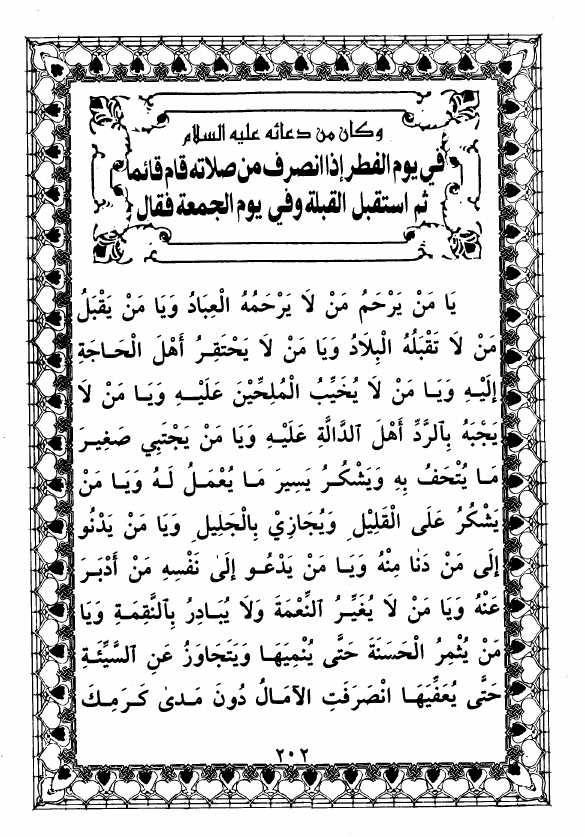 وكان من دعائه عليه السلام
في يوم الفطر إذا انصرف من صلاته قام قائما
ثم استقبل القبلة وفي يوم الجمعة فقال
يَا مَنْ يَرْحَمُ مَنْ لَا يَرْحَمُهُ الْعِبَادُ وَيَا مَنْ يَقْبَلُ
مَنْ لَا تَقْبَلُهُ الْبِلَادُ وَيَا مَنْ لَا يَحْتَقِرُ أَهْلَ الْحَاجَةِ
إِلَيْهِ وَيَا مَنْ لَا يُخَيِّبُ الْمُلِحِّيْنَ عَلَيْهِ وَيَا مَنْ لَا
يَجْبَهُ بِالرَّدِّ أَهْلَ الدَّالَّةِ عَلَيْهِ وَيَا مَنْ يَجْتَبِي صَغِيرَ
مَا يُتْحَفُ بِهِ وَيَشْكُرُ يَسِيرَ مَا يُعْمَلُ لَهُ وَيَا مَنْ
يَشْكُرُ عَلَى الْقَلِيْلِ وَيُجَازِيْ بِالْجَلِيلِ وَيَا مَنْ يَدْنُو
إِلَى مَنْ دَنَا مِنْهُ وَيَا مَنْ يَدْعُو إِلَىٰ نَفْسِهِ مَنْ أَدْبَرَ
عَنْهُ وَيَا مَنْ لَا يُغَيِّرُ النِّعْمَةَ وَلَا يُبَادِرُ بِالنَّقِمَةِ وَيَا
مَنْ يُثْمِرُ الْحَسَنَةَ حَتَّى يُنْمِيَهَا وَيَتَجَاوَزُ عَنِ السَّيِّئَةِ
حَتَّى يُعَفِّيَهَا انْصَرَفَتِ الآمَالُ دُونَ مَدىٰ كَرَمِكَ
٢٠٢